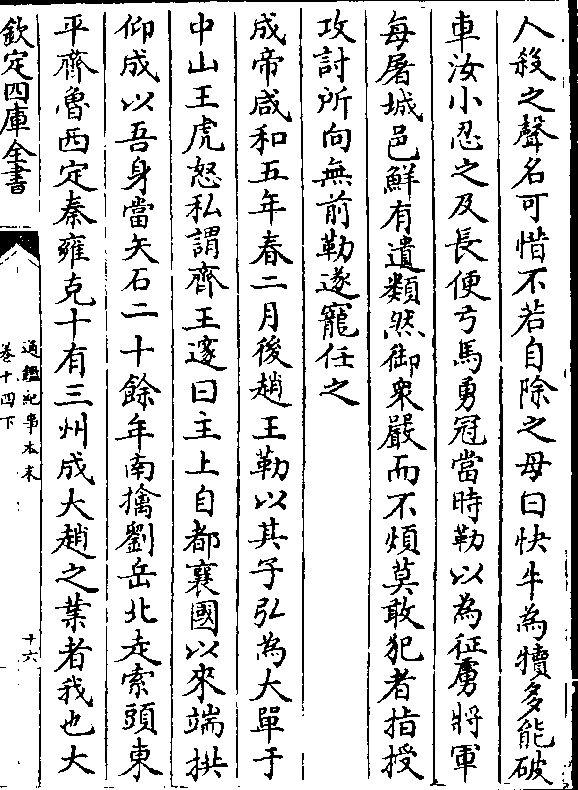 人殺之聲名可惜不若自除之母曰快牛為犢多能破
車汝小忍之及長便弓馬勇冠當時勒以為征虜將軍
每屠城邑鮮有遺類然御衆嚴而不煩莫敢犯者指授
攻討所向無前勒遂寵任之
成帝咸和五年春二月後趙王勒以其子弘為大單于
中山王虎怒私謂齊王邃曰主上自都襄國以來端拱
仰成以吾身當矢石二十餘年南擒劉岳北走索頭東
平齊魯西定秦雍克十有三州成大趙之業者我也大
欽定四庫全書
通鑑紀事本末
卷十四下
十六